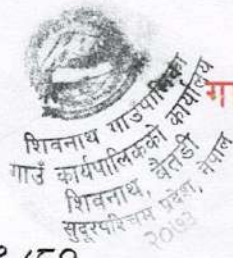 शिवनाथ गाउँपालिका
गाउँ कार्यपालिकको कार्यालय
शिवनाथ, बैतडी
सुदूरपश्चिम प्रदेश, नेपाल
२०७३
ग